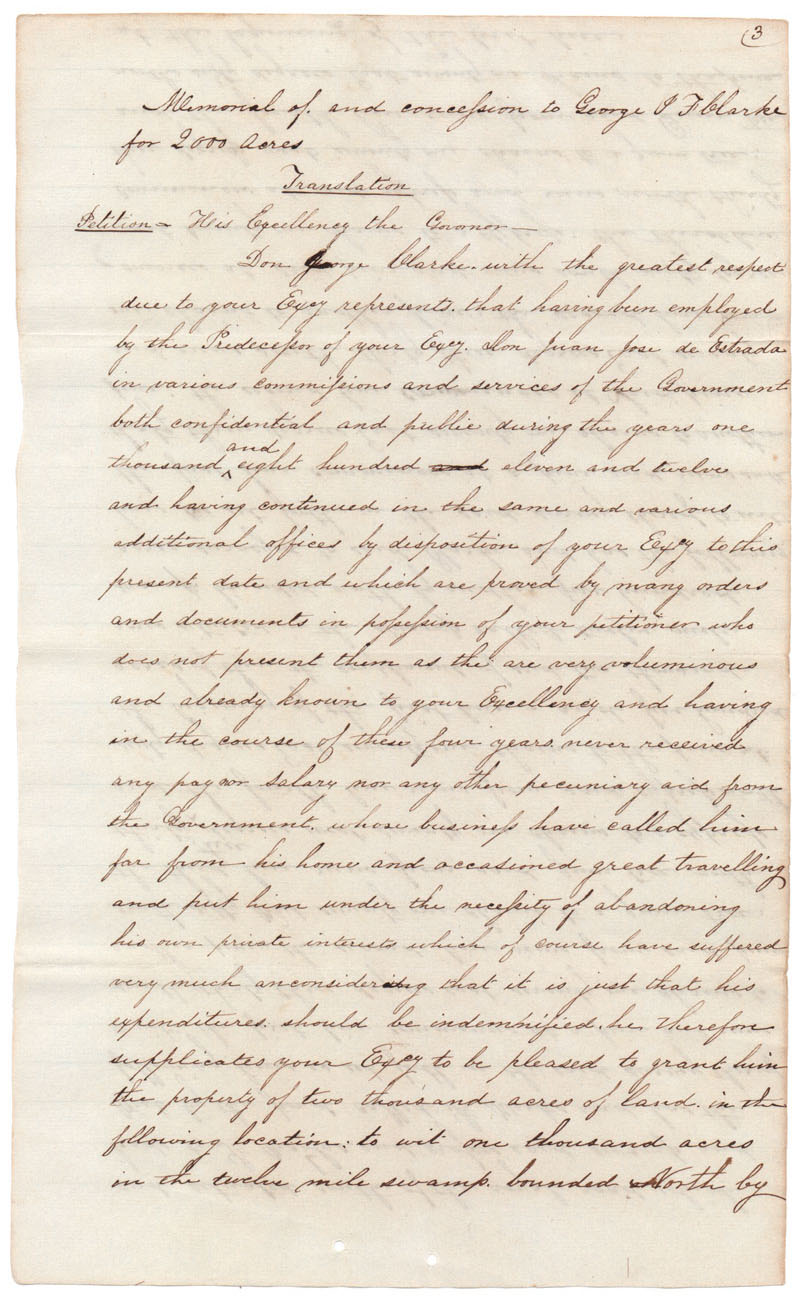 3
Memorial of. and concession to George J F Clarke
for 2000 Acres
Translation
Petition - His Excellency the Govornor -
Don George Clarke. with the greatest respect
due to your Excy represents. that having been employed
by the Predecessor of your Excy. Don Juan Jose de Estrada
in various commissions and services of the Government
both confidential and public during the years one
thousand and eight hundred and eleven and twelve
and having continued in the same and various
additional offices by disposition of your Excy to this
present date and which are proved by many orders
and documents in possession of your petitioner who
does not present them as the are very voluminous
and already known to your Excellency and having
in the course of these four years. never received
any pay nor salary nor any other pecuniary aid from
the Government. whose business have called him
far from his home and occasioned great travelling
and put him under the necessity of abandoning
his own private interests which of course have suffered
very much an considering that it is just that his
expenditures. should be indemnified. he therefore
supplicates your Excy to be pleased to grant him
the property of two thousand acres of land. in the
following location: to wit one thousand acres
in the twelve mile swamp. bounded North by